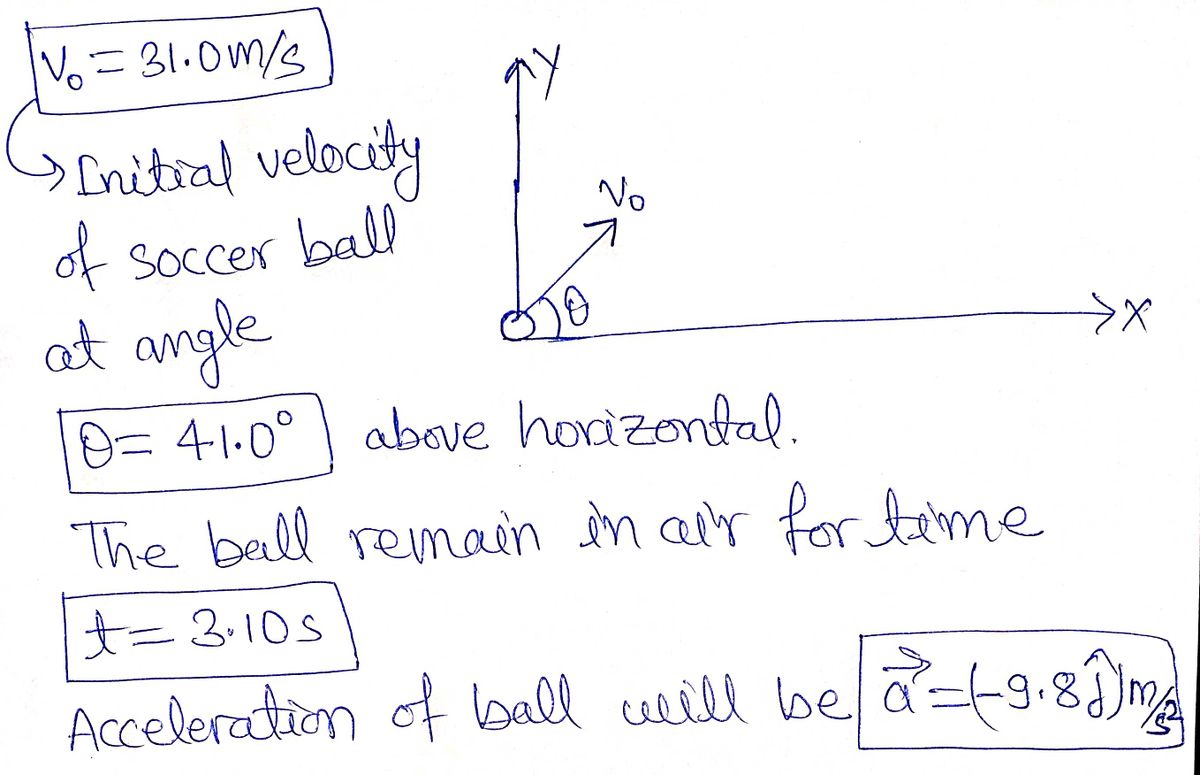 V₀ = 31.0 m/s
Y
→ Initial velocity
V₀
of soccer ball
θ
X
at angle
θ = 41.0° above horizontal.
The ball remain in air for time
t = 3.10s
Acceleration of ball will be a⃗ = (-9.8ĵ) m/s²